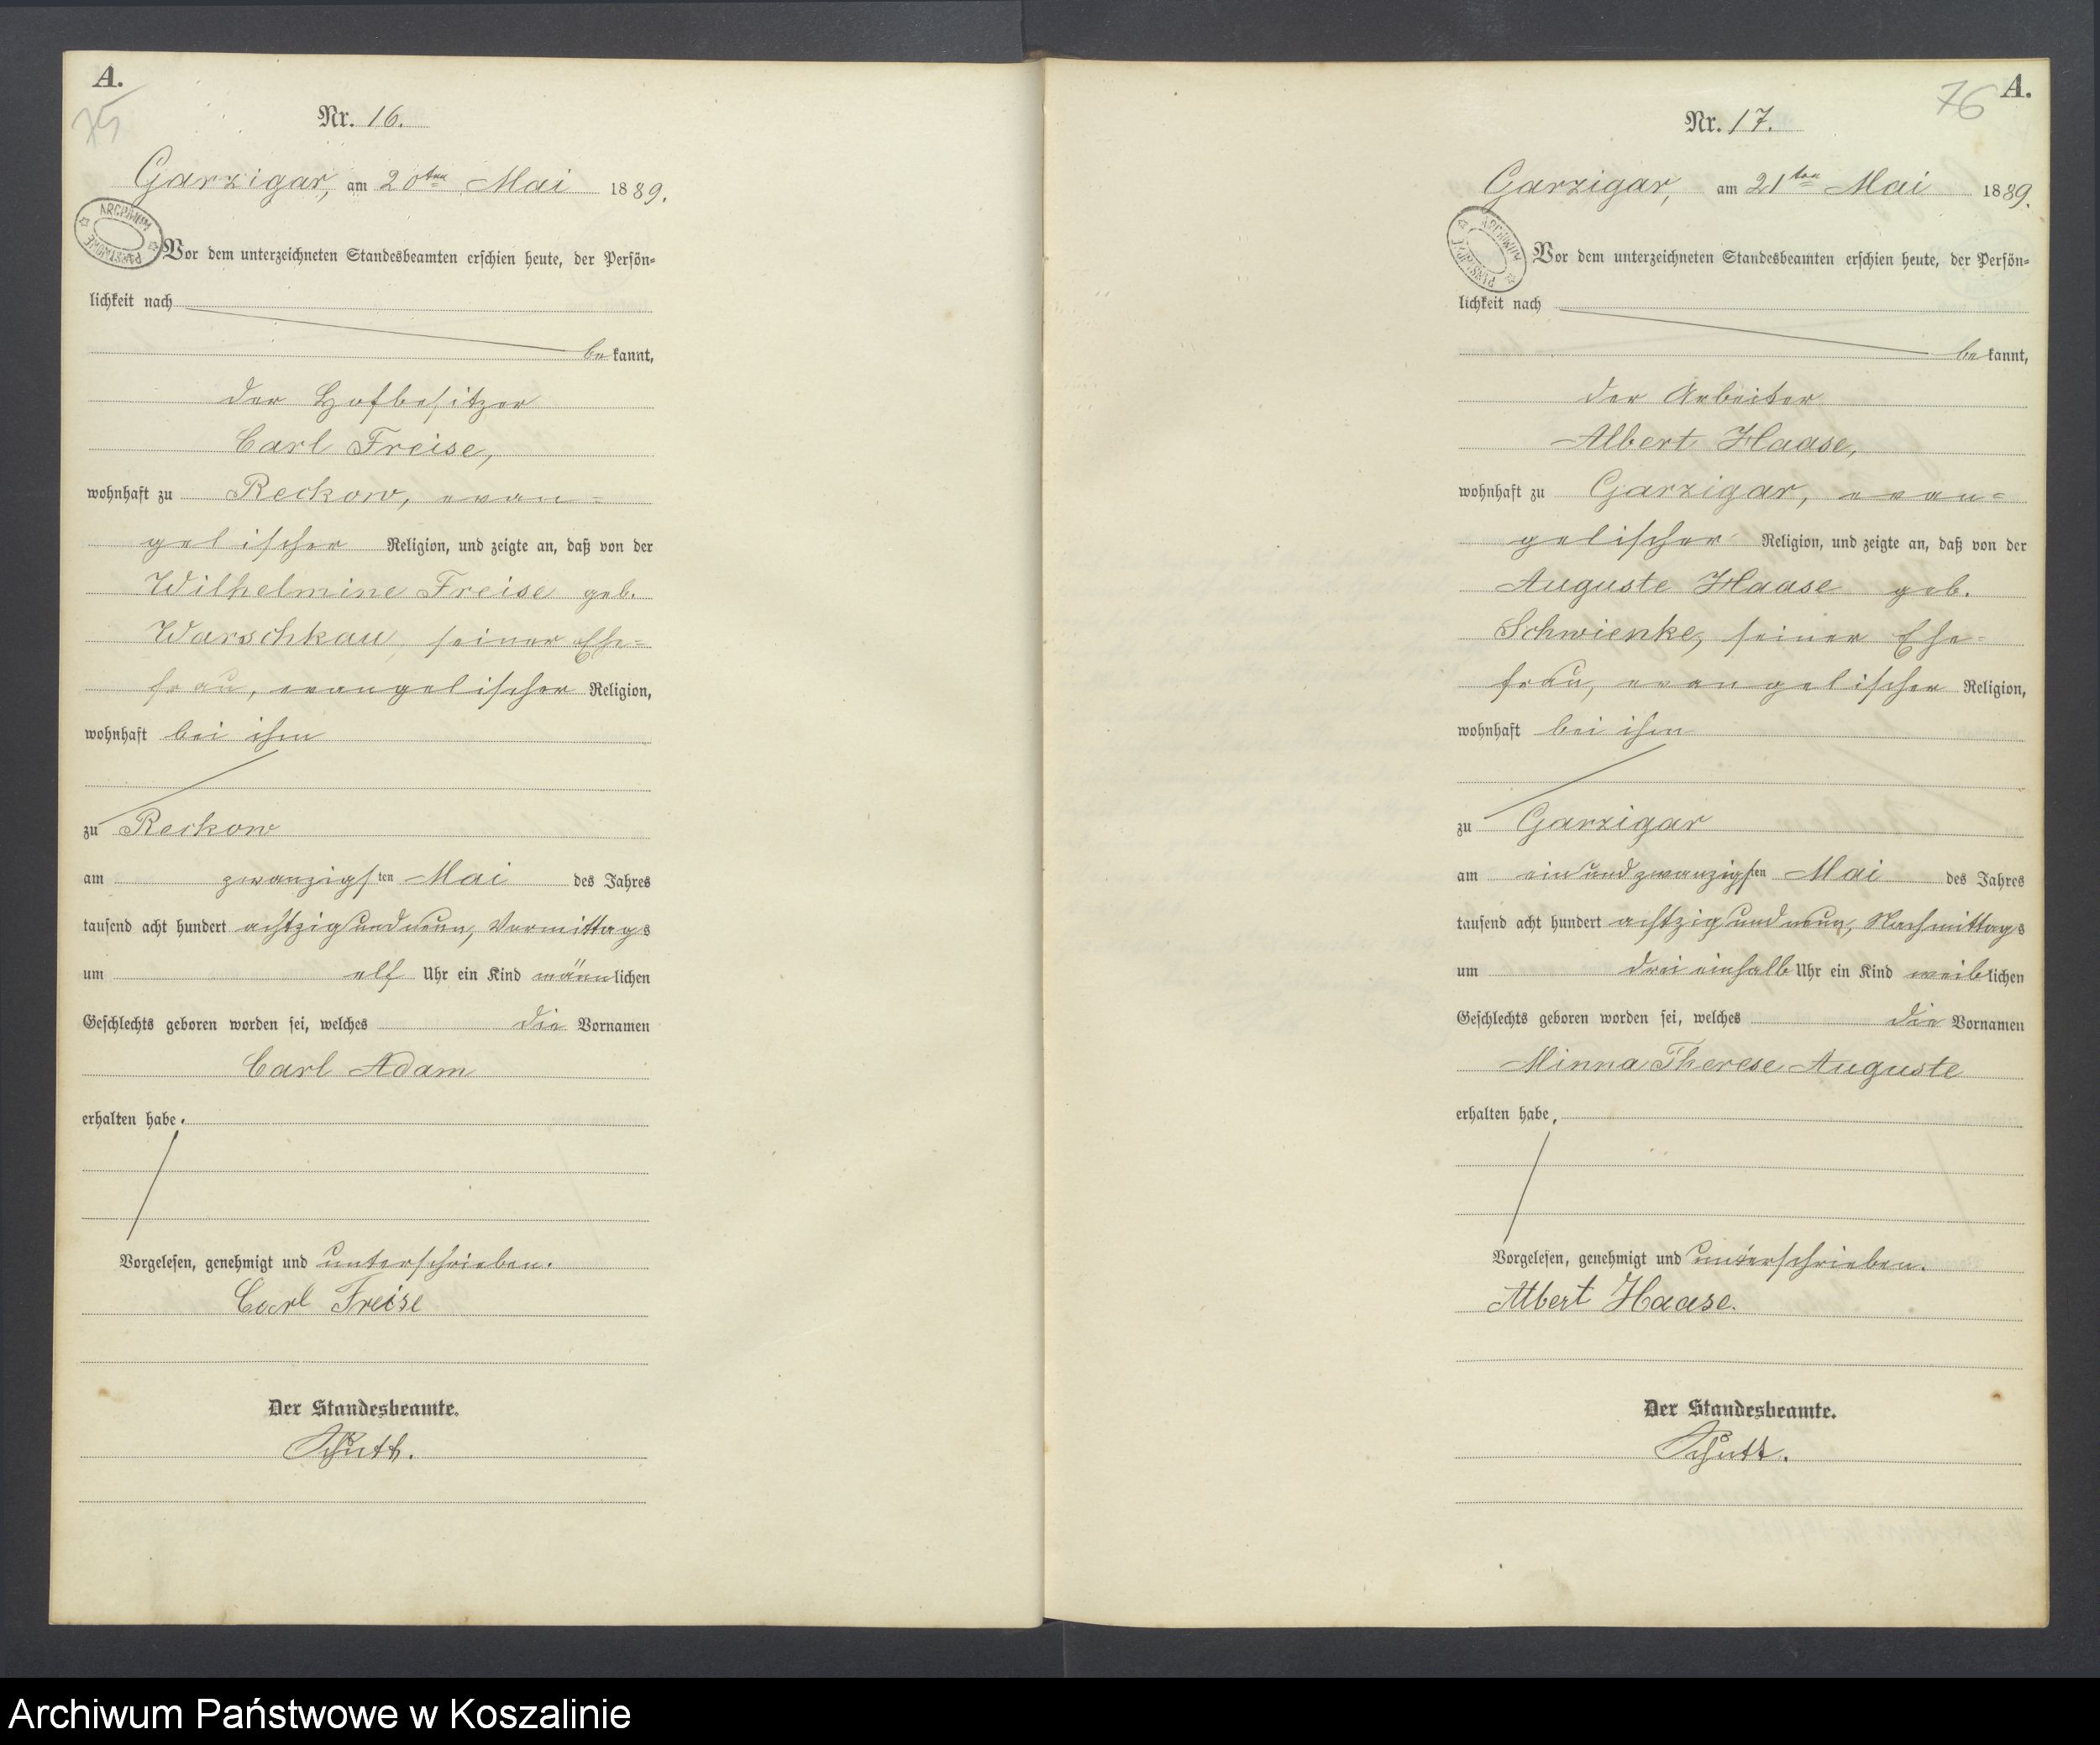 A.
75
Nr. 16.
Garzigar, am 20ten Mai 1889.
ARCHIWUM PAŃSTWOWE
Vor dem unterzeichneten Standesbeamten erschien heute, der Persön=
lichkeit nach
bekannt,
der Hofbesitzer
Carl Freise,
wohnhaft zu Reckow, evan=
gelischer Religion, und zeigte an, daß von der
Wilhelmine Freise geb.
Warschkau, seiner Ehe=
frau, evangelischer Religion,
wohnhaft bei ihm
zu Reckow
am zwanzigsten Mai des Jahres
tausend acht hundert achtzig und neun, Vormittags
um elf Uhr ein Kind männlichen
Geschlechts geboren worden sei, welches die Vornamen
Carl Adam
erhalten habe.
Vorgelesen, genehmigt und unterschrieben.
Carl Freise
Der Standesbeamte.
Schütt.
76 A.
Nr. 17.
Garzigar, am 21ten Mai 1889.
ARCHIWUM PAŃSTWOWE
Vor dem unterzeichneten Standesbeamten erschien heute, der Persön=
lichkeit nach
bekannt,
der Arbeiter
Albert Haase,
wohnhaft zu Garzigar, evan=
gelischer Religion, und zeigte an, daß von der
Auguste Haase geb.
Schwienke, seiner Ehe=
frau, evangelischer Religion,
wohnhaft bei ihm
zu Garzigar
am ein und zwanzigsten Mai des Jahres
tausend acht hundert achtzig und neun, Nachmittags
um drei einhalb Uhr ein Kind weiblichen
Geschlechts geboren worden sei, welches die Vornamen
Minna Therese Auguste
erhalten habe.
Vorgelesen, genehmigt und unterschrieben.
Albert Haase.
Der Standesbeamte.
Schütt.
Archiwum Państwowe w Koszalinie